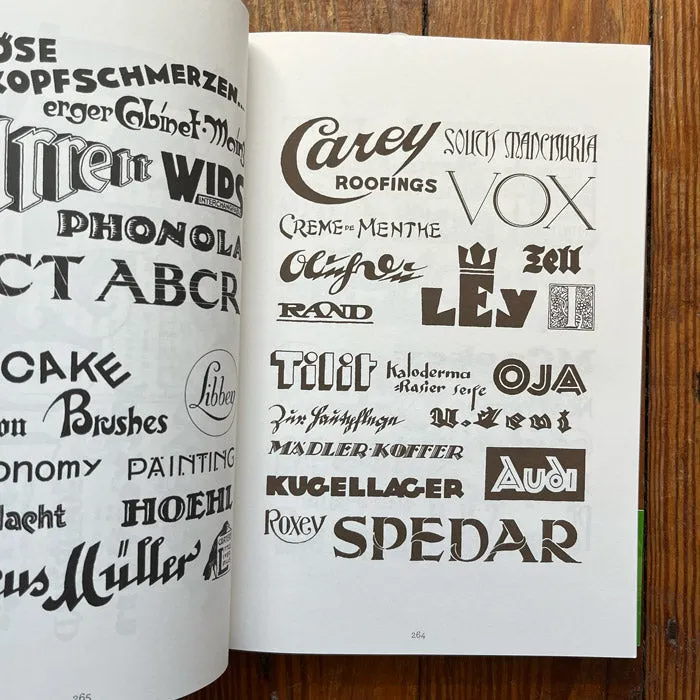 ÖSE
KOPFSCHMERZEN...
erger Cabinet-
WIDS
INTERCHANGEABLE
PHONOLA
CT ABCR
CAKE
Libbey
on Brushes
onomy PAINTING
Nacht HOEHL
cus Müller
265
Carey
ROOFINGS
SOUTH MANCHURIA
VOX
CREME DE MENTHE
Tell
LEY
RAND
T
Tilit
Kaloderma
=Rasier Seife
OJA
Zur Hautpflege
MÄDLER-KOFFER
Audi
KUGELLAGER
Roxey
SPEDAR
264